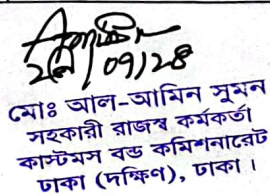 ০৭/২৪
মোঃ আল-আমিন সুমন
সহকারী রাজস্ব কর্মকর্তা
কাস্টমস বন্ড কমিশনারেট
ঢাকা (দক্ষিণ), ঢাকা।